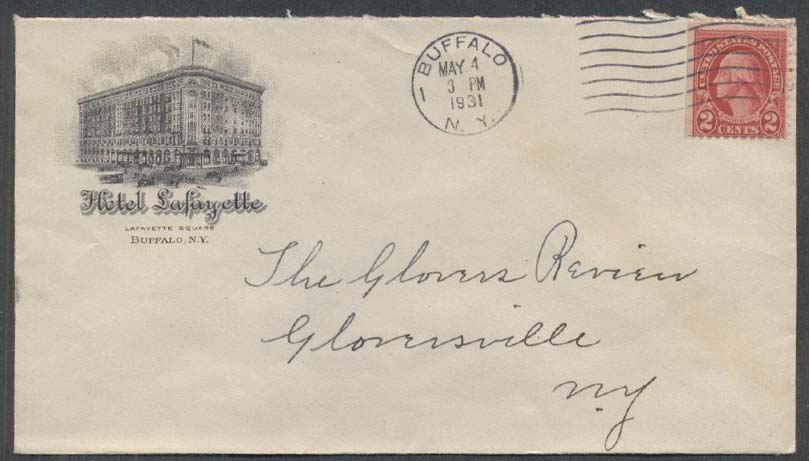 BUFFALO
MAY 4
3 PM
1931
N. Y.
1
UNITED STATES POSTAGE
2 CENTS 2
Hotel Lafayette
LAFAYETTE SQUARE
BUFFALO, N.Y.
The Glovers Review
Gloversville
NY